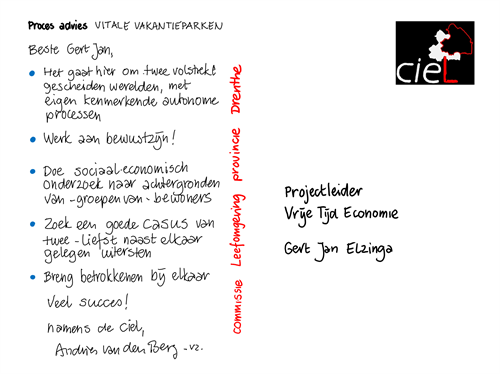 Proces advies VITALE VAKANTIEPARKEN
Beste Gert Jan,
• Het gaat hier om twee volstrekt
gescheiden werelden, met
eigen kenmerkende autonome
processen
• Werk aan bewustzijn!
• Doe sociaal-economisch
onderzoek naar achtergronden
van -groepen van- bewoners
• Zoek een goede casus van
twee -liefst naast elkaar
gelegen uitersten
• Breng betrokkenen bij elkaar
Veel succes!
namens de Ciel,
Andries van den Berg -vz.
commissie Leefomgering provincie Drenthe
cieL
Projectleider
Vrije Tijd Economie
Gert Jan Elzinga